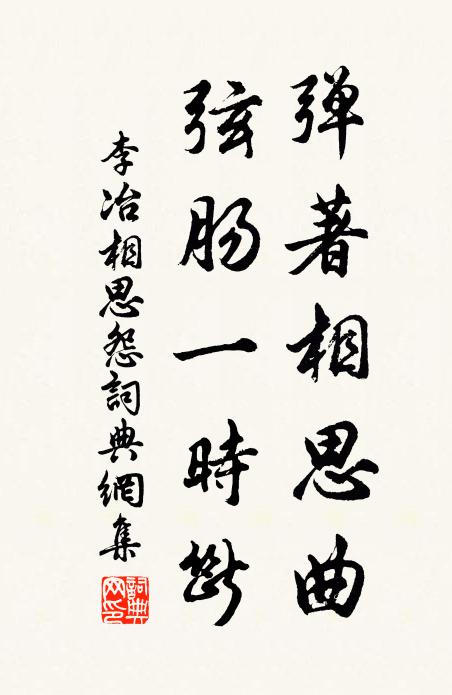 弹著相思曲
弦肠一時断
李冶相思怨詞典網集
詞典网印